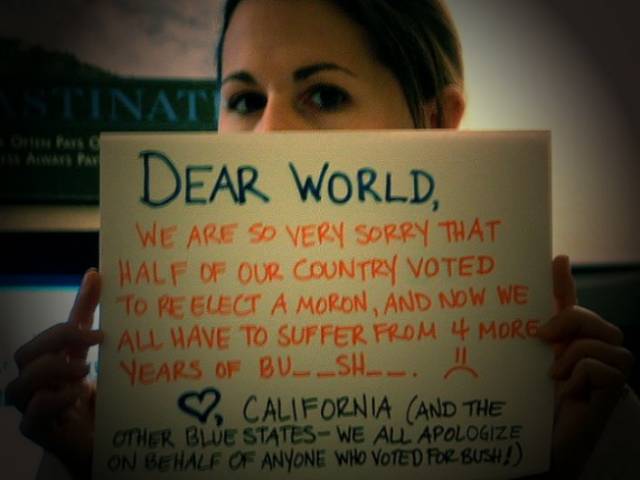 STINAT
OFTEN PAYS O
ALWAYS PAY
DEAR WORLD,
WE ARE SO VERY SORRY THAT
HALF OF OUR COUNTRY VOTED
TO RE ELECT A MORON, AND NOW WE
ALL HAVE TO SUFFER FROM 4 MORE
YEARS OF BU__SH__.
♡, CALIFORNIA (AND THE
OTHER BLUE STATES - WE ALL APOLOGIZE
ON BEHALF OF ANYONE WHO VOTED FOR BUSH!)